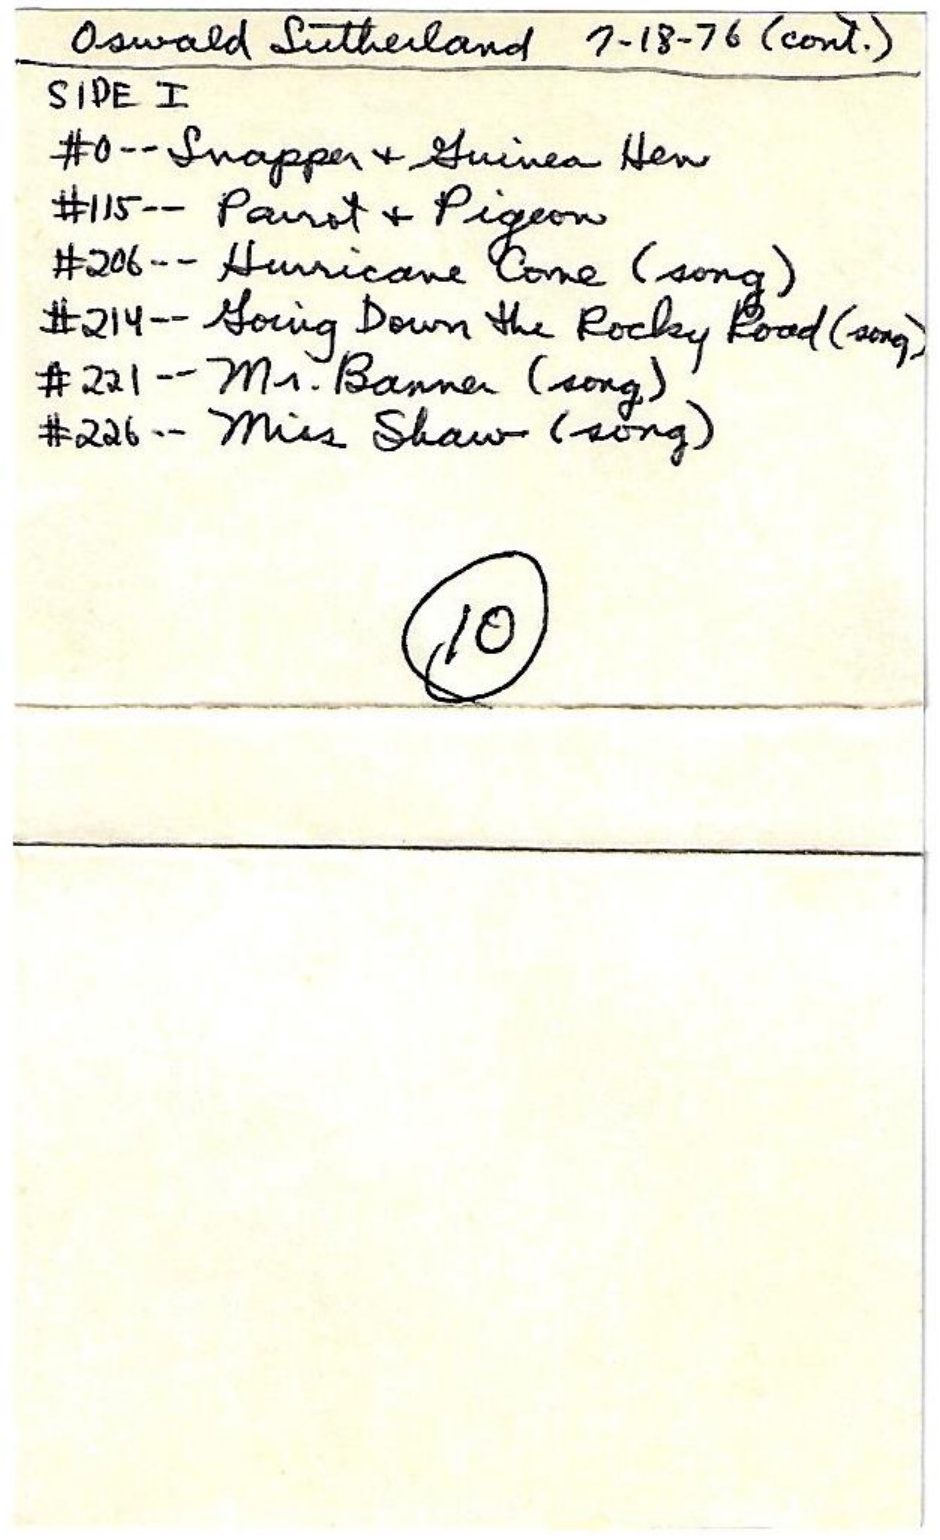 Oswald Sutherland 7-18-76 (cont.)
SIDE I
#0-- Snapper + Guinea Hen
#115-- Parrot + Pigeon
#206-- Hurricane Come (song)
#214-- Going Down the Rocky Road (song)
#221-- Mr. Banner (song)
#226-- Miss Shaw (song)
10